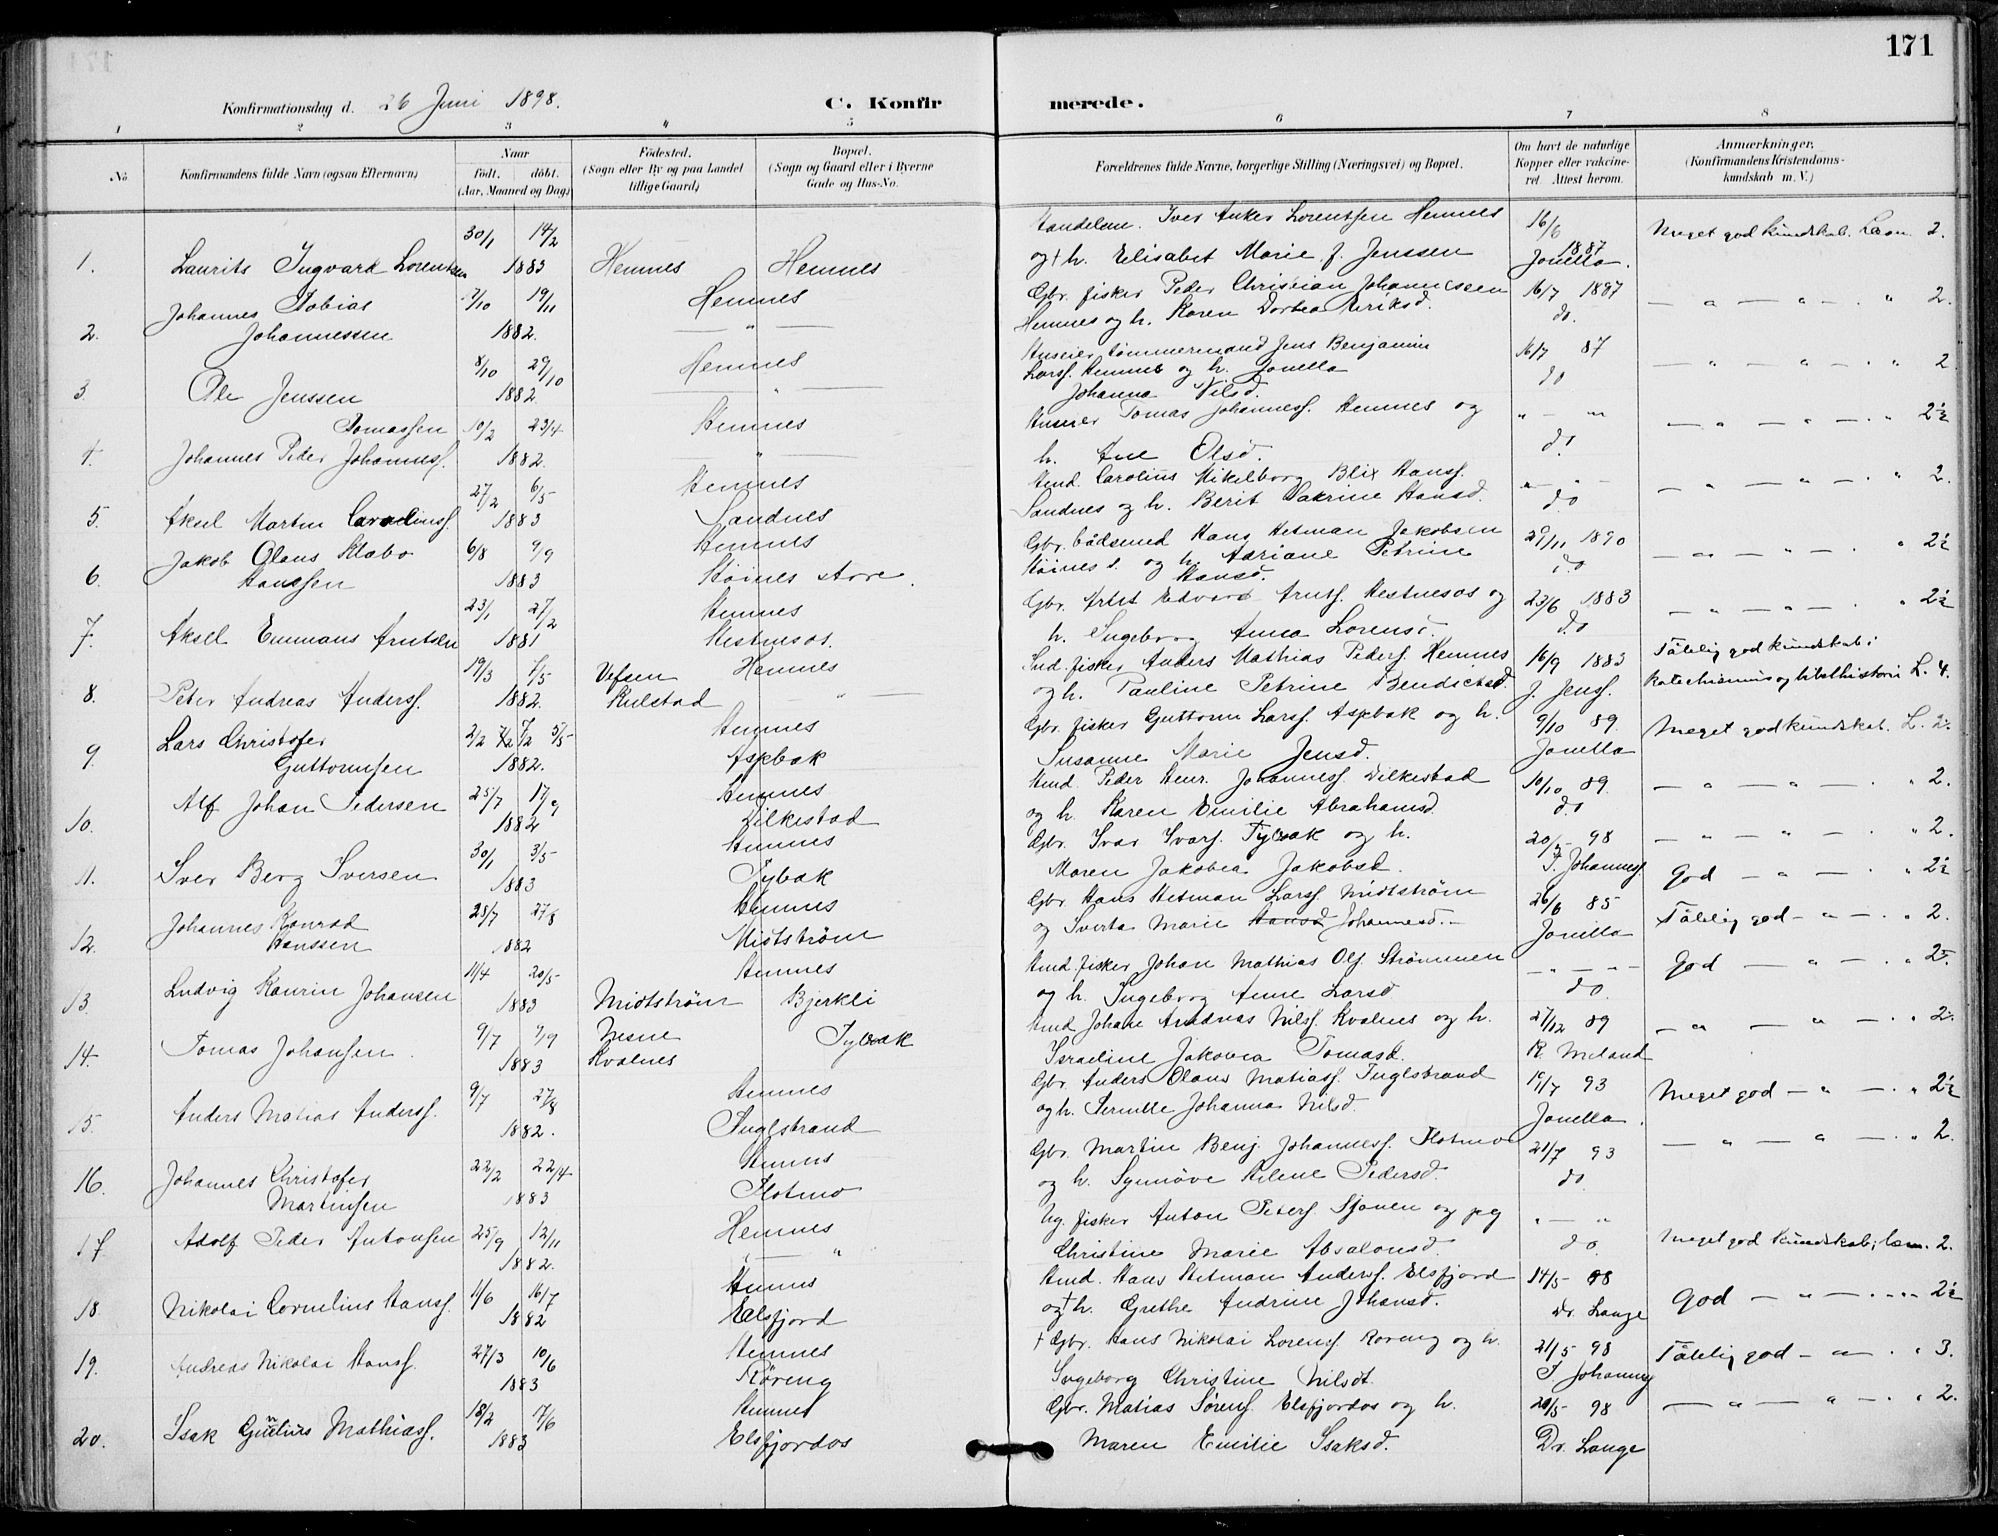 171
Konfirmationsdag d. 26 Juni 1898. C. Konfirmerede.
1 2 3 4 5 6 7 8
No. Konfirmandens fulde Navn (ogsaa Efternavn) Naar födt. döbt. (Aar, Maaned og Dag) Födested. (Sogn eller By og paa Landet tillige Gaard) Bopæl. (Sogn og Gaard eller i Byerne Gade og Hus-No. Forældrenes fulde Navne, borgerlige Stilling (Næringsvei) og Bopæl. Om havt de naturlige Kopper eller vaccineret. Attest herom. Anmærkninger. (Konfirmandens Kristendomskundskab m. V.)
1. Laurits Ingvard Lorentsen 30/1 14/2 1883 Hemnes Hemnes
Handelsm. Iver Anker Lorentsen Hemnes 16/6 1887 Meget god Kundskab. Læsn. 2.
og † h. Elisabet Marie f. Jenssen Jonella.
2. Johannes Tobias Johannessen 7/10 19/11 1882. Hemnes
Gbr. fisker Peder Christian Johannessen 16/7 1887 — " — " — . " 2.
Hemnes og h. Karen Dortea Eriksd. do.
3. Ole Jenssen 8/10 29/10 1882. Hemnes
Huseier tømmermand Jens Benjamin 16/7 87 — " — " — . " 2
Larsf. Hemnes og h. Jonella do
Johanna Nilsd.
4. Johannes Peder Johannesf. Tomassen 10/2 23/4 1882. Hemnes
Huseier Tomas Johannesf. Hemnes og " — " — " — " — . " 2½
h. Ane Olsd. do.
5. Aksel Martin Carolinsf. 27/2 6/5 1883 Hemnes Sandnes
Hmd. Carolius Mikelborg Blix Hansf. — " — " — . " 2.
Sandnes og h. Berit Katrine Hansd. do
6. Jakob Olaus Klabo Hanssen 6/8 9/9 1883 Hemnes Høines store.
Gbr. bådsmd Hans Hetman Jakobsen 29/11 1890 — " — " — . " 2½
Høines s. og h. Adriane Petrine Hansd. do
7. Aksel Emmans Arntsen 23/1 27/2 1881 Hemnes Hestnesos.
Gbr. Arnt Edvard Arntsf. Hestnesos og 23/6 1883 — " — " — . " 2½
h. Ingeborg Anna Lorensd. do
8. Peter Andreas Andersf. 19/3 6/5 1882. Vefsen Kulstad Hemnes
Ind. fisker Anders Mathias Pedersf. Hemnes 16/9 1883 Tålelig god kundskab i
og h. Pauline Petrine Bendictsd. J. Jensf. Katechismus og bibelhistorie L. 4.
9. Lars Christofer Guttormsen 2/2 5/5 1882. Hemnes Aspbak
Gbr. fisker Guttorm Larsf. Aspbak og h. 9/10 89 Meget god kundskab. L. 2.
Susanne Marie Jensd. Jonella
10. Alf Johan Pedersen 25/7 17/9 1882 Hemnes Dilkestad
Hmd. Peder Henr. Johannesf. Dilkestad 10/10 89. — " — " — " 2.
og h. Karen Emilie Abrahamsd. do
11. Iver Berg Iversen 30/1 3/5 1883 Hemnes Tybak
Gbr. Ivar Ivarsf. Tybak og h. 20/5 98 — " — " — . " 2.
Maren Jakobea Jakobsd. T. Johannesf.
12. Johannes Konrad Hanssen 25/7 27/8 1882 Hemnes Midtstrøm
Gbr. Hans Hetman Larsf. Midtstrøm 26/6 85 God — " — . " 2½
og Sverta Marie Hansd Johannesd. Jonella Tålelig god — " — . " 2.
13. Ludvig Kaurin Johansen 11/4 20/5 1883 Midtstrøm Hemnes Bjerkli
Hmd. fisker Johan Mathias Olsf. Strømmen — " — " — God — " — . " 2
og h. Ingeborg Anne Larsd do
14. Tomas Johansen. 9/7 9/9 1883 Nesne Kvalnes Tybak
Hmd Johan Andreas Nilsf. Kvalnes og h. 27/12 89 — " — " — . " 2
Israeline Jakobea Tomasd. K. Meland
15. Anders Matias Andersf. 9/7 27/8 1882. Hemnes Inglstrand
Gbr. Anders Olaus Matiasf. Inglstrand 19/7 93 Meget god — " — . " 2½
og h. Pernille Johanna Nilsd. Jonella.
16. Johannes Christofer Martinsen 22/2 22/4 1883 Hemnes Flotmo
Gbr. Martin Benj. Johannesf. Flotmo 21/7 93 — " — " — . " 2.
og h. Synnøve Helene Pedersd. do
17 Adolf Peder Antonsen 25/9 12/11 1882. Hemnes " — "
Ug. fisker Anton Petersf. Sjonen og pig " — "
Christine Marie Absalonsd. do. Meget god kundskab; læsn. 2.
18. Nikolai Cornelius Hansf. 1/6 16/7 1882 Hemnes Elsfjord
Hmd. Hans Hetman Andersf. Elsfjord 14/5 98
og † h. Grethe Andrine Johansd. Dr. Lange God — " — . " 2½
19. Andreas Nikolai Hansf. 27/3 10/6 1883 Hemnes Røreng
† Gbr. Hans Nikolai Lorensf. Røreng og h. 21/5 98 Tålelig god — " — . " 3.
Ingeborg Christine Nilsdt. T Johannesf
20. Isak Gunelius Mathiasf. 18/2 7/6 1883 Hemnes Elsfjordos
Gbr. Matias Sørensf. Elsfjordos og h. 20/5 98 — " — " — . " 2.
Maren Emilie Isaksd. Dr. Lange